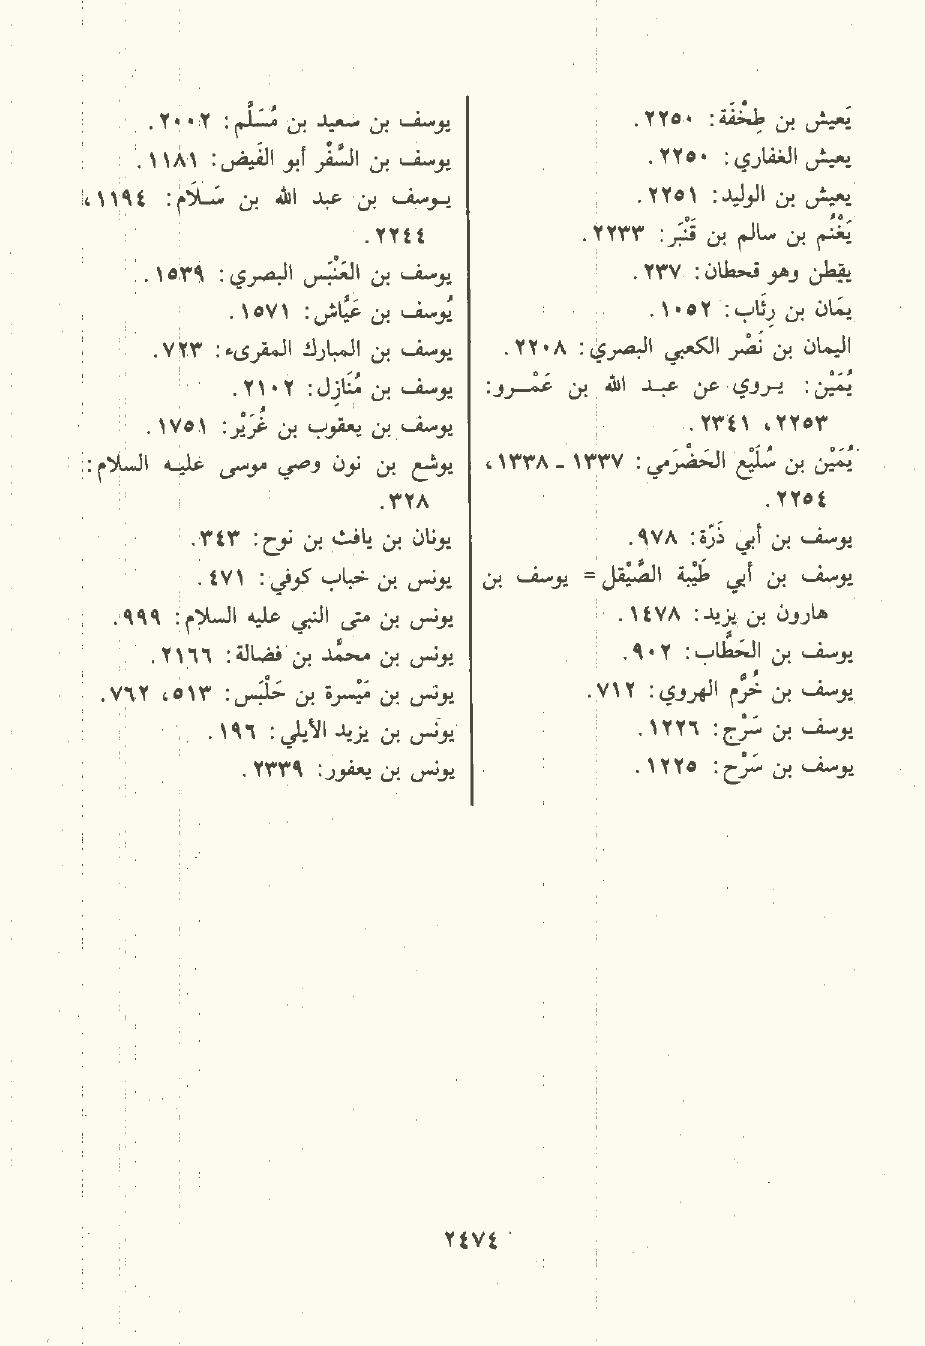 يَعيش بن طِخْفَة: ٢٢٥٠.
يعيش الغفاري: ٢٢٥٠.
يعيش بن الوليد: ٢٢٥١.
يَغْنُم بن سالم بن قَنْبَر: ٢٢٣٣.
يقطن وهو قحطان: ٢٣٧.
يمَان بن رِئَاب: ١٠٥٢.
اليمان بن نَصْر الكعبي البصري: ٢٢٠٨.
يُمَيْن: يـروي عن عبـد الله بن عَمْـرو:
٢٢٥٣، ٢٣٤١.
يُمَيْن بن سُلَيْع الحَضْرَمي: ١٣٣٧ ـ ١٣٣٨،
٢٢٥٤.
يوسف بن أبي ذَرَّة: ٩٧٨.
يوسف بن أبي طَيْبة الصَّيْقل= يوسف بن
هارون بن يزيد: ١٤٧٨.
يوسف بن الخَطَّاب: ٩٠٢.
يوسف بن خُرَّم الهروي: ٧١٢.
يوسف بن سَرْج: ١٢٢٦.
يوسف بن سَرْح: ١٢٢٥.
يوسف بن سعيد بن مُسَلَّم: ٢٠٠٢.
يوسف بن السَّفْر أبو الفَيض: ١١٨١.
يـوسف بن عبد الله بن سَـلَام: ١١٩٤،
٢٢٤٤.
يوسف بن العَنْبَس البصري: ١٥٣٩.
يُوسف بن عَيَّاش: ١٥٧١.
يوسف بن المبارك المقرىء: ٧٢٣.
يوسف بن مُنَازِل: ٢١٠٢.
يوسف بن يعقوب بن غُرَيْر: ١٧٥١.
يوشع بن نون وصي موسى عليـه السلام:
٣٢٨.
يونان بن يافث بن نوح: ٣٤٣.
يونس بن خباب كوفي: ٤٧١.
يونس بن متى النبي عليه السلام: ٩٩٩.
يونس بن محمَّد بن فضالة: ٢١٦٦.
يونس بن مَيْسرة بن حَلْبَس: ٥١٣، ٧٦٢.
يونس بن يزيد الأيلي: ١٩٦.
يونس بن يعفور: ٢٣٣٩.
٢٤٧٤